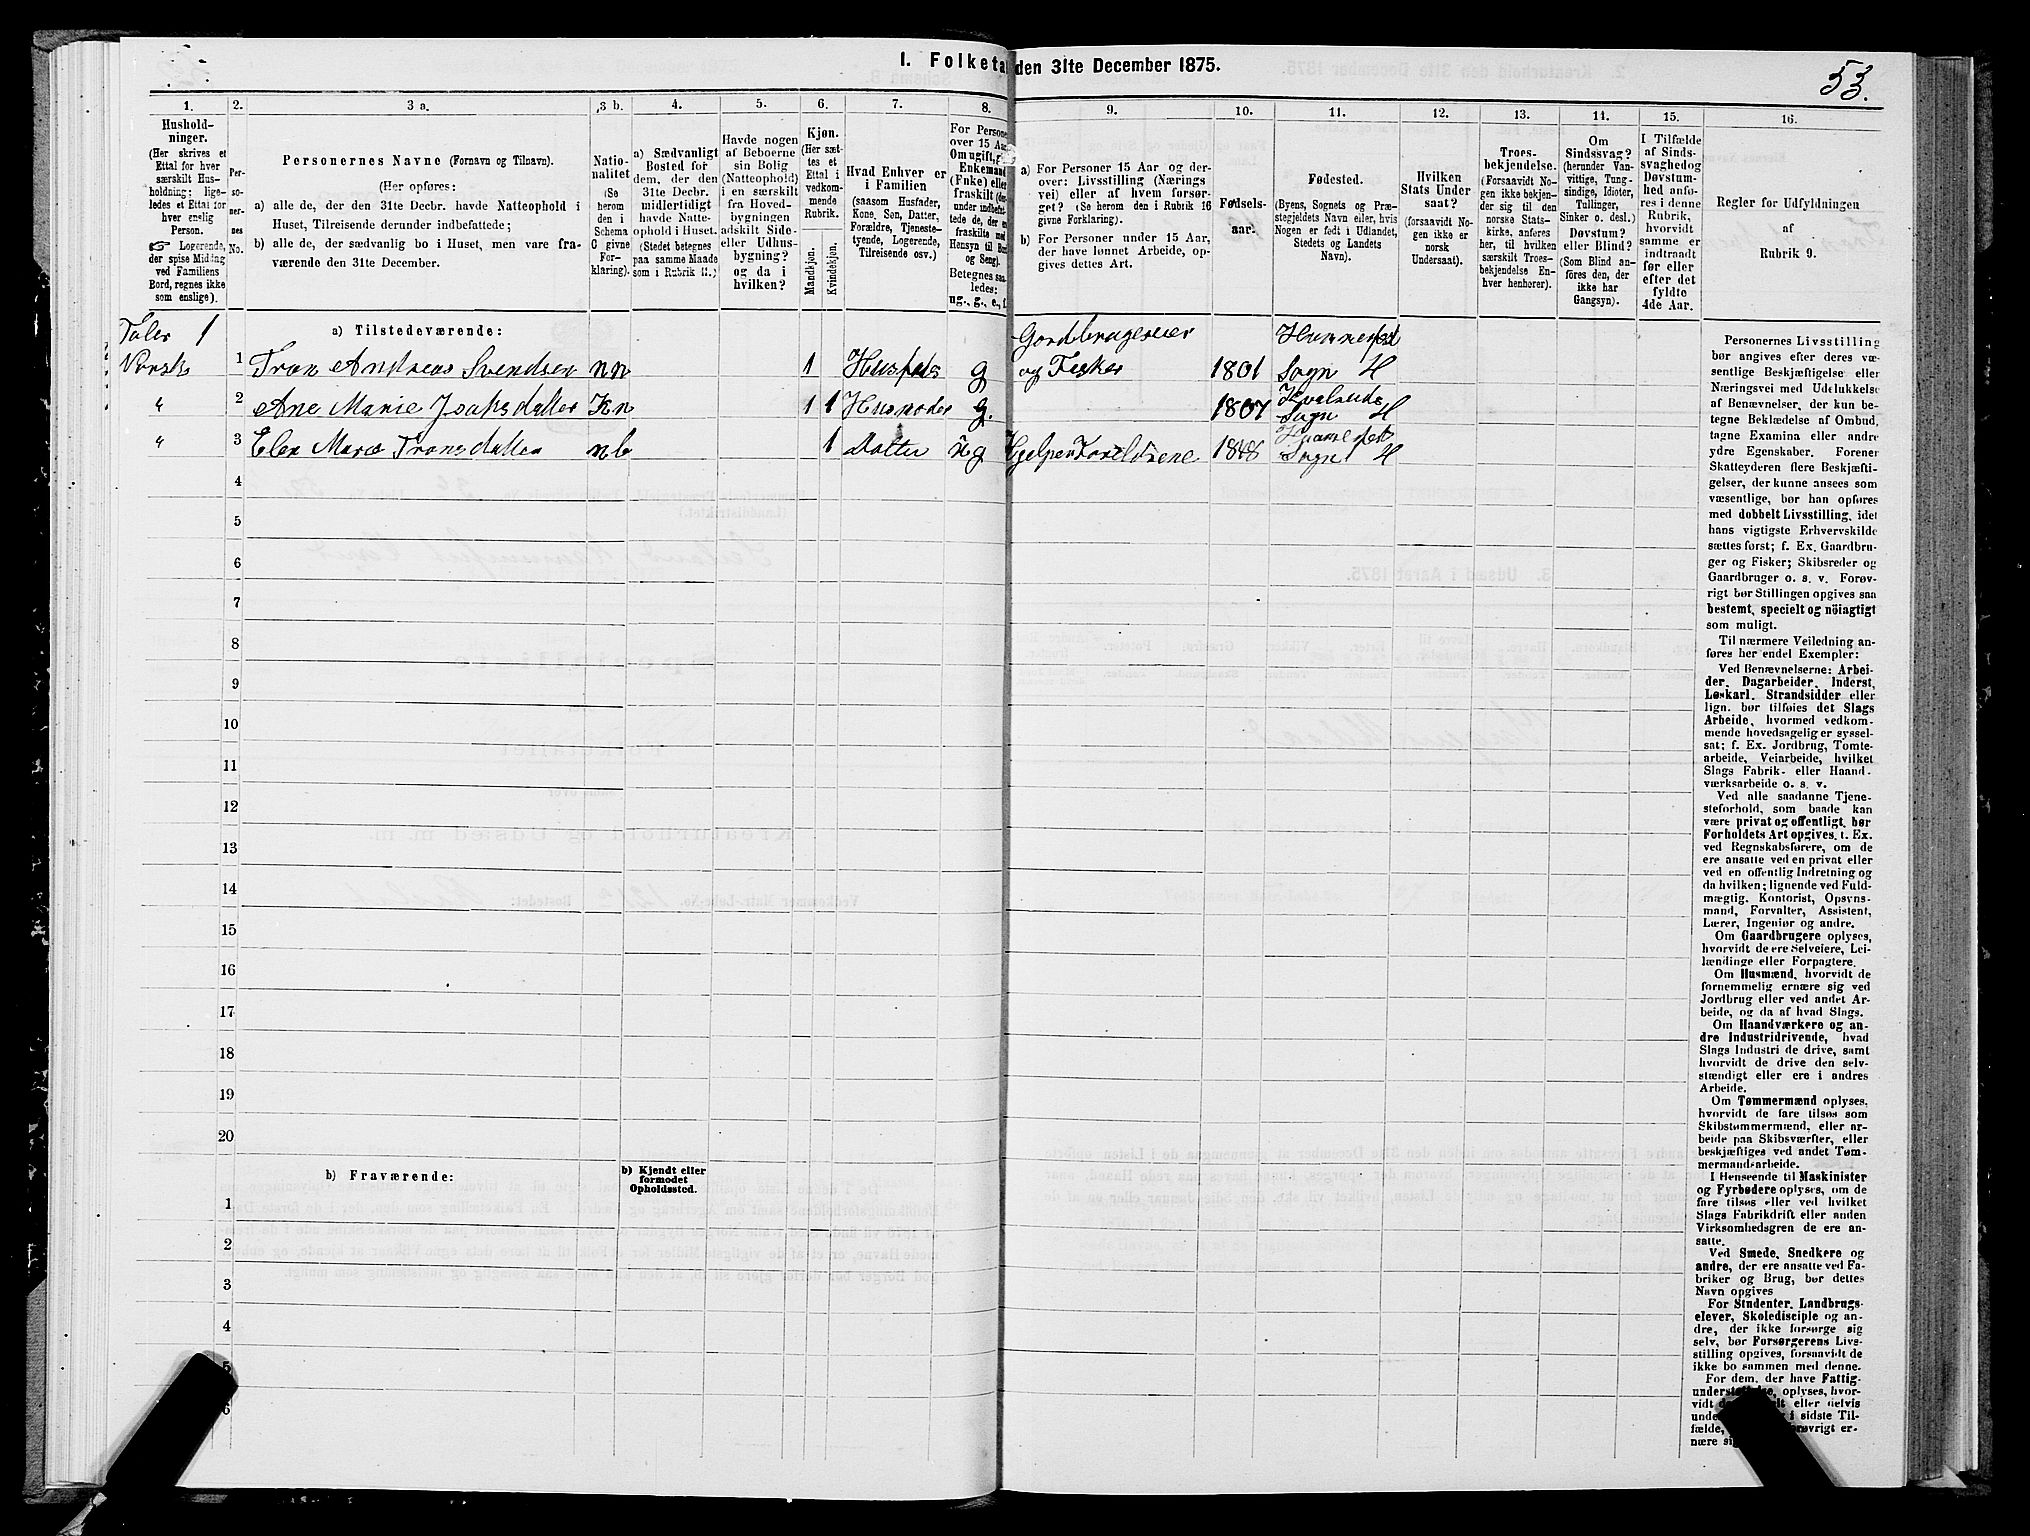 I. Folketal den 31te December 1875.
53.
1. 2. 3 a. 3 b. 4. 5. 6. 7. 8. 9. 10. 11. 12. 13. 14. 15. 16.
Hushold-
ninger.
(Her skrives et
Ettal for hver
særskilt Hus-
holdning; lige-
ledes et Ettal for
hver enslig
Person.
☞ Logerende,
der spise Middag
ved Familiens
Bord, regnes ikke
som enslige).
Per-
so-
ner-
nes
No.
Personernes Navne (Fornavn og Tilnavn).
(Her opføres:
a) alle de, der den 31te Decbr. havde Natteophold i
Huset, Tilreisende derunder indbefattede;
b) alle de, der sædvanlig bo i Huset, men vare fra-
værende den 31te December.
Natio-
nalitet
(Se
herom
den i
Schema
C givne
For-
klaring).
a) Sædvanligt
Bosted for
dem, der den
31te Decbr.
midlertidigt
havde Natte-
ophold i Huset.
(Stedet betegnes
paa samme Maade
som i Rubrik 11.)
Havde nogen
af Beboerne
sin Bolig
(Natteophold)
i en særskilt
fra Hoved-
bygningen
adskilt Side-
eller Udhus-
bygning?
og da i
hvilken?
Kjøn.
(Her sæt-
tes et
Ettal i
vedkom-
mende
Rubrik.
Mandkjøn.
Kvindekjøn.
Hvad Enhver er
i Familien
(saasom Husfader,
Kone, Søn, Datter,
Forældre, Tjeneste-
tyende, Logerende,
Tilreisende osv.)
For Persone
over 15 Aar
Om ugift, g
Enkemand
(Enke) eller
fraskilt (der-
under indbefat-
tede de, der er
fraskilte m
Hensyn til Bo
og Seng).
Betegnes saa-
ledes:
ug., g., e., f.
a) For Personer 15 Aar og der-
over: Livsstilling (Nærings
vei) eller af hvem forsør-
get? (Se herom den i Rubrik 16
givne Forklaring).
b) For Personer under 15 Aar,
der have lønnet Arbeide, op-
gives dettes Art.
Fødsels-
aar.
Fødested.
(Byens, Sognets og Præ-
stegjeldets Navn eller, hvis
Nogen er født i Udlandet,
Stedets og Landets
Navn).
Hvilken
Stats Under
saat?
(forsaavidt No-
gen ikke er
norsk
Undersaat).
Troes-
bekjendelse.
(Forsaavidt No-
gen ikke bekjen-
der sig til den
norske Stats-
kirke, anføres
her, til hvilken
særskilt Troes-
bekjendelse En-
hver henhører).
Om
Sindssvag?
(herunder Van-
vittige, Tung-
sindige, Idioter,
Tullinger,
Sinker o. desl.)
Døvstum?
eller Blind?
(Som Blind an-
føres den, der
ikke har
Gangsyn).
I Tilfælde
af Sinds-
svaghedog
Døvstum-
hed anfø-
res i denne
Rubrik,
hvorvidt
samme er
indtraadt
før eller
efter det
fyldte
4de Aar.
Regler for Udfyldningen
af
Rubrik 9.
Taler 1 a) Tilstedeværende: Gordbrugeseier Hammerfest
Norsk 1 Tron Andreas Svendsen nn 1 Husfads g og Fisker 1801 Sogn H
" 2 Ane Marie Isaksdatter Kn 1 1 Husmoder g. 1807 Kvalsunds Sogn H
" 3 Elen Marie Tronsdatter nb 1 Datter ug Hjelper Foreldrene 1848 Hammerfest Sogn H
4
5
6
7
8
9
10
11
12
13
14
15
16
17
18
19
20
b) Fraværende:
b) Kjendt eller
formodet
Opholdssted.
1
2
3
4
5
6
Personernes Livsstilling
bør angives efter deres væ-
sentlige Beskjæftigelse eller
Næringsvei med Udelukkelse
af Benævnelser, der kun be-
tegne Beklædelse af Ombud,
tagne Examina eller andre
ydre Egenskaber. Forener
Skatteyderen flere Beskjæfti-
gelser, der kunne ansees som
væsentlige, bør han opføres
med dobbelt Livsstilling, idet
hans vigtigste Erhvervskilde
sættes først; f. Ex. Gaardbru-
ger og Fisker; Skibsreder og
Gaardbruger o. s. v. Forøv-
rigt bør Stillingen opgives saa
bestemt, specielt og nöiagtigt
som muligt.
Til nærmere Veiledning an-
føres her endel Exempler:
Ved Benævnelserne: Arbei-
der, Dagarbeider, Inderst,
Løskarl, Strandsidder eller
lign. bør tilføies det Slags
Arbeide, hvormed vedkom-
mende hovedsagelig er syssel-
sat; f. Ex. Jordbrug, Tomte-
arbeide, Veiarbeide, hvilket
Slags Fabrik- eller Haand-
værksarbeide o. s. v.
Ved alle saadanne Tjene-
steforhold, som baade kan
være privat og offentligt, bør
Forholdets Art opgives, t. Ex.
ved Regnskabsførere, om de
ere ansatte ved en privat eller
ved en offentlig Indretning og
da hvilken; lignende ved Fuld-
mægtig, Kontorist, Opsyns-
mand, Forvalter, Assistent,
Lærer, Ingeniør og andre.
Om Gaardbrugere oplyses,
hvorvidt de ere Selveiere, Lei-
lændinge eller Forpagtere.
Om Husmænd, hvorvidt de
fornemmelig ernære sig ved
Jordbrug eller ved andet Ar-
beide, og da af hvad Slags.
Om Haandværkere og an-
dre Industridrivende, hvad
Slags Industri de drive, samt
hvorvidt de drive den selv-
stændigt eller ere i andres
Arbeide.
Om Tømmermænd oplyses,
hvorvidt de fare tilsøs som
Skibstømmermænd, eller ar-
beide paa Skibsværfter, eller
beskjæftiges ved andet Tøm-
mermandsarbeide.
I Henseende til Maskinister
og Fyrbødere oplyses, om de
fare tilsøs eller ved hvilket
Slags Fabrikdrift eller anden
Virksomhedsgren de ere an-
satte.
Ved Smede, Snedkere og
andre, der ere ansatte ved Fa-
briker og Brug, bør dettes
Navn opgives
For Studenter, Landbrugs-
elever, Skoledisciple og an-
dre, der ikke forsørge sig
selv, bør Forsørgerens Livs-
stilling opgives, forsaavidt de
ikke bo sammen med denne.
For dem, der have Fattig-
understøttelse, oplyses, hvor-
vidt de ... elt eller delvis
unde ... i sidste Til-
fælde, ... forøvrigt er-
nære sig